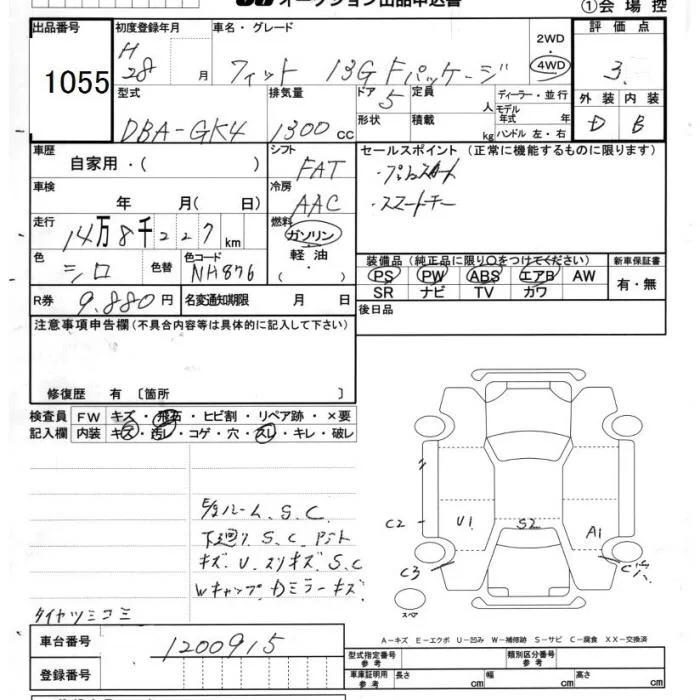 オークション出品申込書
①会場控
出品番号
1055
初度登録年月
H
28 月
車名・グレード
フィット 13G Fパッケージ
2WD
4WD
評価点
3.
外装 内装
D B
型式
DBA-GK4
排気量
1300 cc
ドア
5
形状
定員
人
積載
kg
ディーラー・並行
モデル年式 年
ハンドル 左・右
車歴
自家用・( )
シフト
FAT
セールスポイント (正常に機能するものに限ります)
・プッシュスタート
・スマートキー
車検
年 月( 日)
冷房
AAC
走行
14万8千227km
燃料
ガソリン
軽油
( ・ )
色
シロ
色替
色コード
NH876
装備品 (純正品に限り○をつけてください)
PS PW ABS エアB AW
SR ナビ TV カワ
新車保証書
有・無
R券
9.880円
名変通知期限 月 日
後日品
注意事項申告欄(不具合内容等は具体的に記入して下さい)
修復歴 有 〔箇所 〕
検査員
記入欄
FW キズ・飛石・ヒビ割・リペア跡・×要
内装 キズ・汚レ・コゲ・穴・スレ・キレ・破レ
E/gルーム S.C.
下廻り S.C.
キズ U. スリキズ S.C
Wキャップ Dミラーキズ
タイヤツミコミ
C2
U1
S2
A1
C3
スペア
A-キズ E-エクボ U-凹み W-補修跡 S-サビ C-腐食 XX-交換済
車台番号
1200915
登録番号
型式指定番号
参考
類別区分番号
参考
車庫証明用
参考
長さ cm 幅 cm 高さ cm